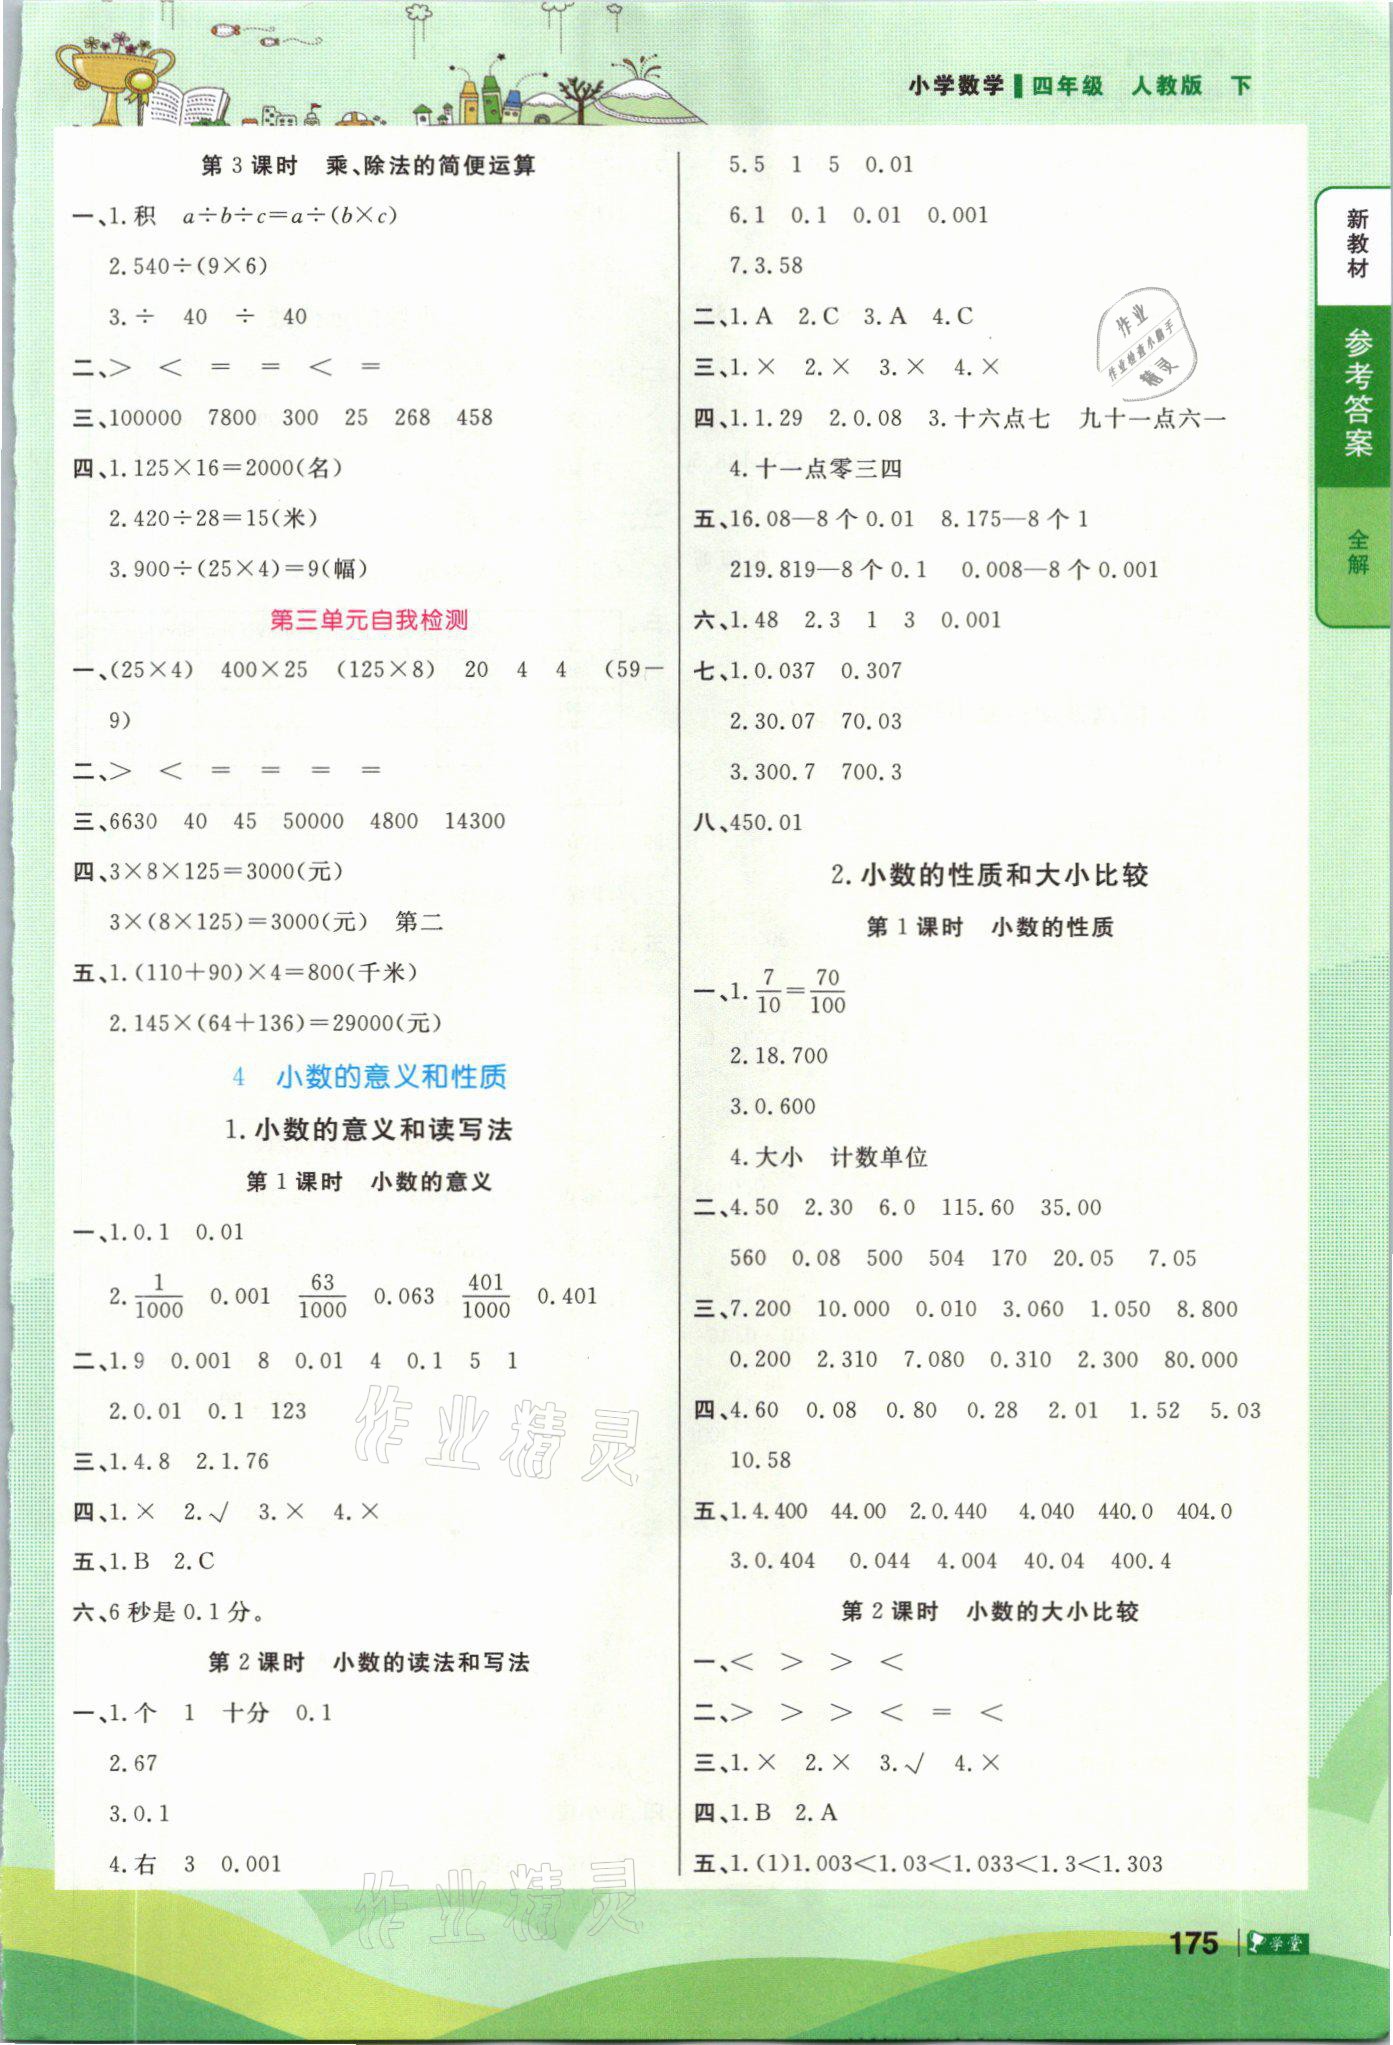 小学数学 四年级 人教版 下
第3课时 乘、除法的简便运算
一、1.积 a÷b÷c=a÷(b×c)
2.540÷(9×6)
3.÷ 40 ÷ 40
二、> < = = < =
三、100000 7800 300 25 268 458
四、1.125×16=2000(名)
2.420÷28=15(米)
3.900÷(25×4)=9(幅)
第三单元自我检测
一、(25×4) 400×25 (125×8) 20 4 4 (59-
9)
二、> < = = = =
三、6630 40 45 50000 4800 14300
四、3×8×125=3000(元)
3×(8×125)=3000(元) 第二
五、1.(110+90)×4=800(千米)
2.145×(64+136)=29000(元)
4 小数的意义和性质
1.小数的意义和读写法
第1课时 小数的意义
一、1.0.1 0.01
2.1/1000 0.001 63/1000 0.063 401/1000 0.401
二、1.9 0.001 8 0.01 4 0.1 5 1
2.0.01 0.1 123
三、1.4.8 2.1.76
四、1.× 2.√ 3.× 4.×
五、1.B 2.C
六、6秒是0.1分。
第2课时 小数的读法和写法
一、1.个 1 十分 0.1
2.67
3.0.1
4.右 3 0.001
5.5 1 5 0.01
6.1 0.1 0.01 0.001
7.3.58
二、1.A 2.C 3.A 4.C
三、1.× 2.× 3.× 4.×
四、1.1.29 2.0.08 3.十六点七 九十一点六一
4.十一点零三四
五、16.08—8个0.01 8.175—8个1
219.819—8个0.1 0.008—8个0.001
六、1.48 2.3 1 3 0.001
七、1.0.037 0.307
2.30.07 70.03
3.300.7 700.3
八、450.01
2.小数的性质和大小比较
第1课时 小数的性质
一、1.7/10=70/100
2.18.700
3.0.600
4.大小 计数单位
二、4.50 2.30 6.0 115.60 35.00
560 0.08 500 504 170 20.05 7.05
三、7.200 10.000 0.010 3.060 1.050 8.800
0.200 2.310 7.080 0.310 2.300 80.000
四、4.60 0.08 0.80 0.28 2.01 1.52 5.03
10.58
五、1.4.400 44.00 2.0.440 4.040 440.0 404.0
3.0.404 0.044 4.004 40.04 400.4
第2课时 小数的大小比较
一、< > > <
二、> > > < = <
三、1.× 2.× 3.√ 4.×
四、1.B 2.A
五、1.(1)1.003<1.03<1.033<1.3<1.303
新教材
参考答案
全解
作业
作业检查小助手
精灵
作业精灵
作业精灵
175
学堂